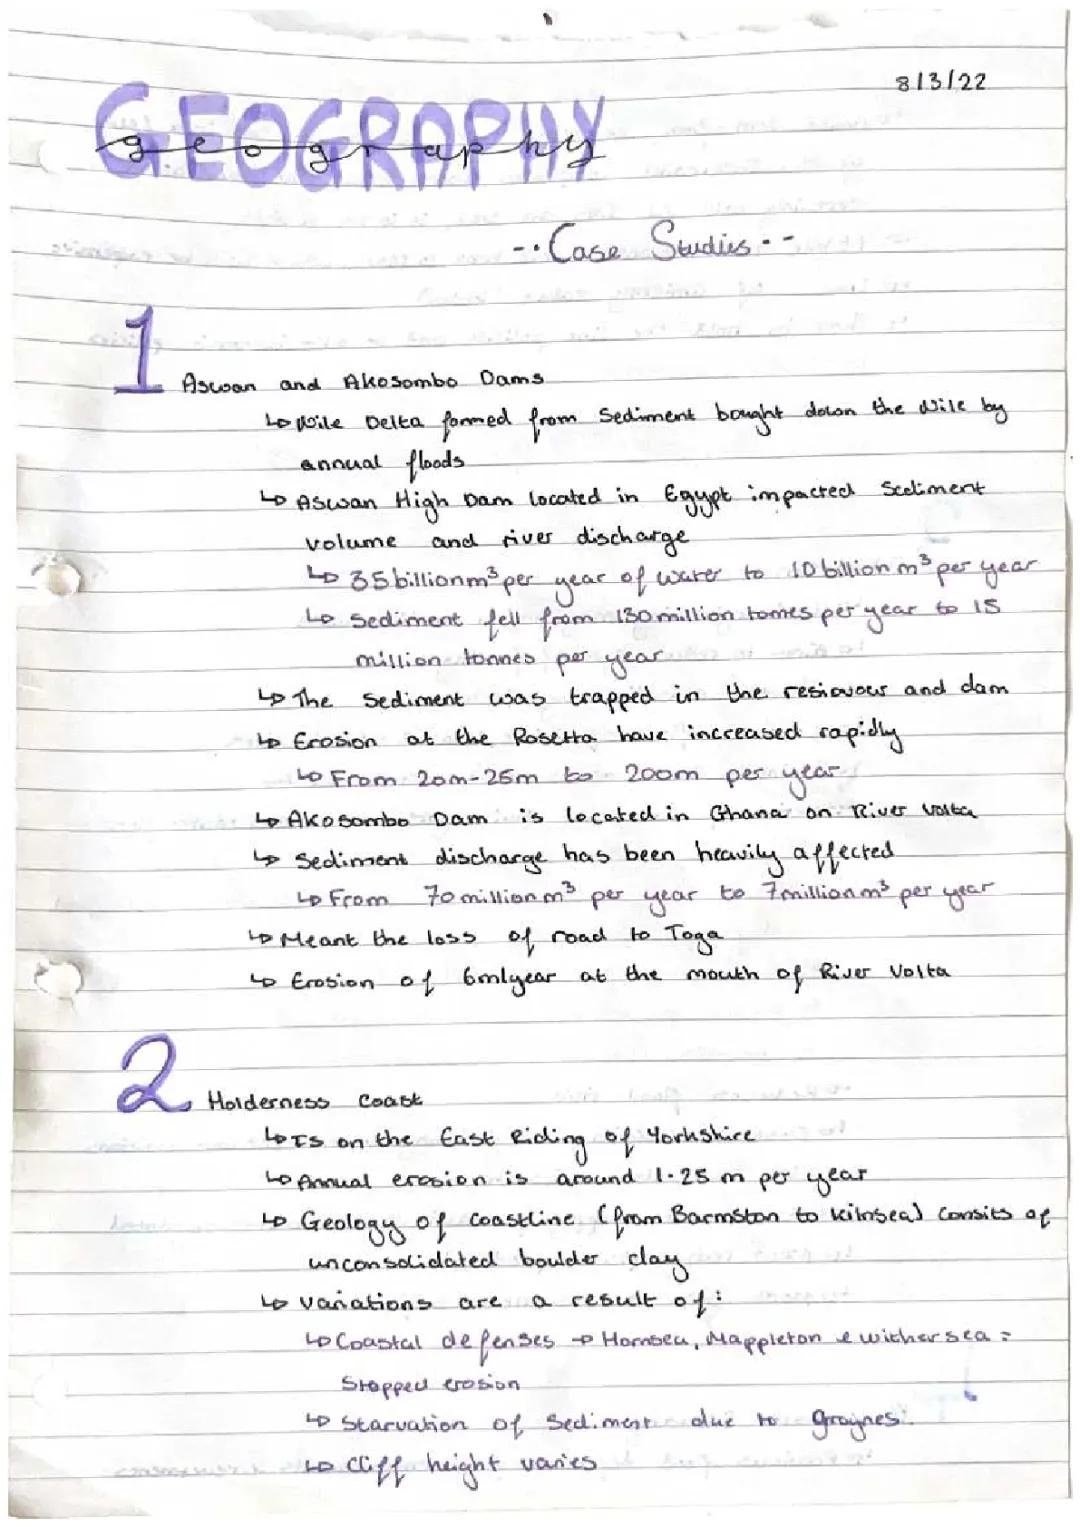 8/3/22
GEOGRAPHY
geography
-·Case Studies·-
1
Aswan and Akosombo Dams
↳ Nile Delta formed from Sediment bought down the Nile by
annual floods
↳ Aswan High Dam located in Egypt impacted Sediment
volume and river discharge
↳ 35 billion m³ per year of water to 10 billion m³ per year
↳ Sediment fell from 130 million tonnes per year to 15
million tonnes per year
↳ The Sediment was trapped in the resiovour and dam
↳ Erosion at the Rosetta have increased rapidly
↳ From 20m-25m to 200m per year
↳ Akosombo Dam is located in Ghana on River Volta
↳ Sediment discharge has been heavily affected
↳ From 70 million m³ per year to 7 million m³ per year
↳ Meant the loss of road to Toga
↳ Erosion of 6m/year at the mouth of River Volta
2
Holderness Coast
↳ Is on the East Riding of Yorkshire
↳ Annual erosion is around 1·25 m per year
↳ Geology of coastline (from Barmston to kilnsea) consits of
unconsolidated boulder clay
↳ variations are a result of:
↳ Coastal defenses → Hornsea, Mappleton & withersea =
Stopped erosion
↳ Starvation of Sediment due to groynes.
↳ Cliff height varies